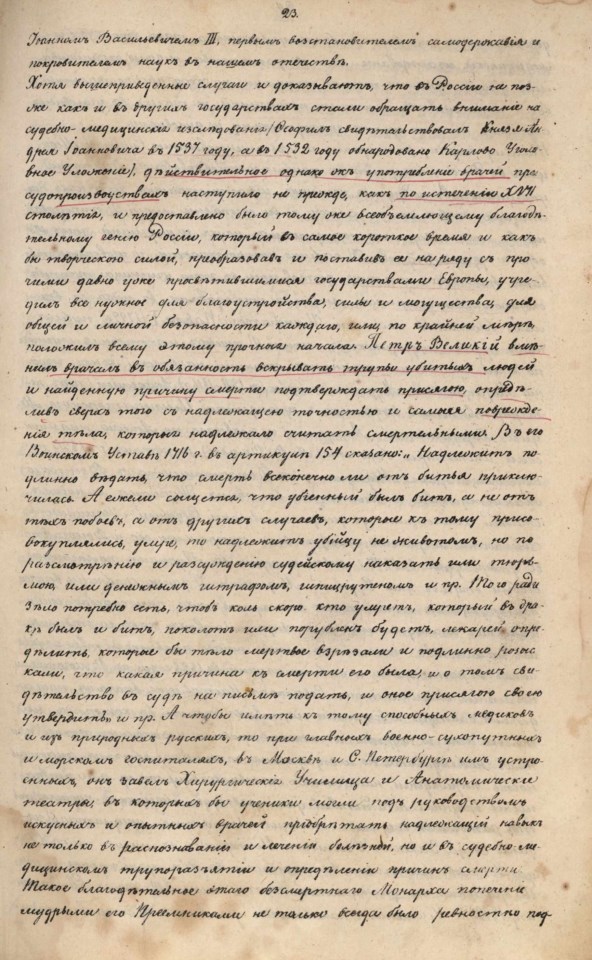 23.
Іоанномъ Васильевичемъ III, первымъ возстановителемъ самодержавія и
покровителемъ наукъ въ нашемъ отечествѣ.
Хотя вышеприведенные случаи и доказываютъ, что въ Россіи не поз-
же какъ и въ другихъ государствахъ стали обращать вниманіе на
судебно-медицинскія изслѣдованія (Ѳеофилъ свидѣтельствовалъ Князя Ан-
дрея Іоанновича въ 1537 году, а въ 1532 году обнародовано Карлово Уголо-
вное Уложеніе), дѣйствительное однако жъ употребленіе врачей при
судопроизводствахъ наступило не прежде, какъ по истеченіи XVII
столѣтія, и предоставлено было тому же всеобъемлющему благодѣ-
тельному генію Россіи, который въ самое короткое время и какъ
бы творческою силой, преобразовавъ и поставивъ ее на ряду съ про-
чими давно уже просвѣтившимися государствами Европы, учре-
дилъ все нужное для благоустройства, силы и могущества, для
общей и личной безопасности каждаго, или, по крайней мѣрѣ,
положилъ всему этому прочныя начала. Петръ Великій вмѣ-
нилъ врачамъ въ обязанность вскрывать трупы убитыхъ людей
и найденную причину смерти подтверждать присягою, опредѣ-
ливъ сверхъ того съ надлежащею точностью и самыя поврежде-
нія тѣла, которыя надлежало считать смертельными. Въ его
Воинскомъ Уставѣ 1716 г. въ артикулѣ 154 сказано: „Надлежитъ по
длинно вѣдать, что смерть всеконечно ли отъ битья приклю-
чилась. А ежели сыщется, что убіенный былъ битъ, а не отъ
тѣхъ побоевъ, а отъ другихъ случаевъ, которые къ тому присо-
вокуплялись, умре, то надлежитъ убійцу не животомъ, но по
разсмотрѣнію и разсужденію судейскому наказать или тюрь-
мою, или денежнымъ штрафомъ, шпицрутеномъ и пр. Того ради
зѣло потребно есть, чтобъ коль скоро кто умретъ, который въ дра-
кѣ былъ и битъ, поколотъ или порубленъ будетъ, лекарей опре-
дѣлить, которые бы тѣло мертвое взрѣзали и подлинно розыс
кали, что какая причина къ смерти его была, и о томъ сви-
дѣтельство въ судѣ на письмѣ подать, и оное присягою своею
утвердить„ и пр. А чтобы имѣть къ тому способныхъ медиковъ
и изъ природныхъ русскихъ, то при главныхъ военно-сухопутныхъ
и морскомъ госпиталяхъ, въ Москвѣ и С. Петербургѣ имъ устро-
енныхъ, онъ завелъ Хирургическія Училища и Анатомическіе
театры, въ которыхъ бы ученики могли подъ руководствомъ
искусныхъ и опытныхъ врачей пріобрѣтать надлежащій навыкъ
не только въ распознаваніи и леченіи болѣзней, но и въ судебно-ме-
дицинскомъ трупоразъятіи и опредѣленіи причинъ смерти.
Такое благодѣтельное этого безсмертнаго Монарха попеченіе
мудрыми его Преемниками не только всегда было ревностно под-